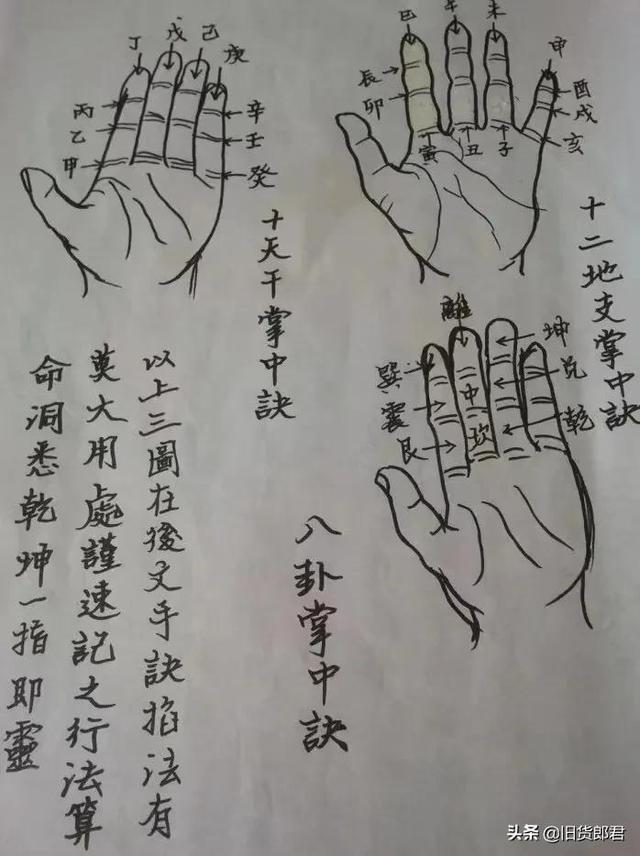 丁
戊
己
庚
丙
乙
甲
辛
壬
癸
十天干掌中訣
巳
午
未
申
辰
卯
寅
丑
子
酉
戌
亥
十二地支掌中訣
離
巽
震
艮
中
坎
坤
兌
乾
八卦掌中訣
以上三圖在後文手訣掐法有
莫大用處謹速記之行法算
命洞悉乾坤一指即靈
头条 @旧货郎君